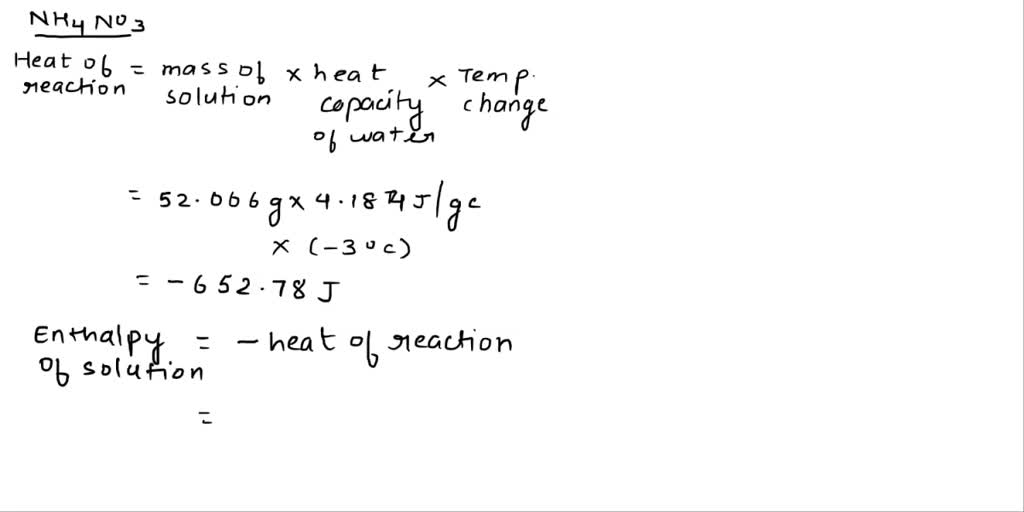 NH4NO3
Heat of reaction = mass of solution × heat capacity of water × Temp. change
= 52.066g × 4.184J/gc
× (-3°c)
= -652.78 J
Enthalpy of solution = - heat of reaction
=